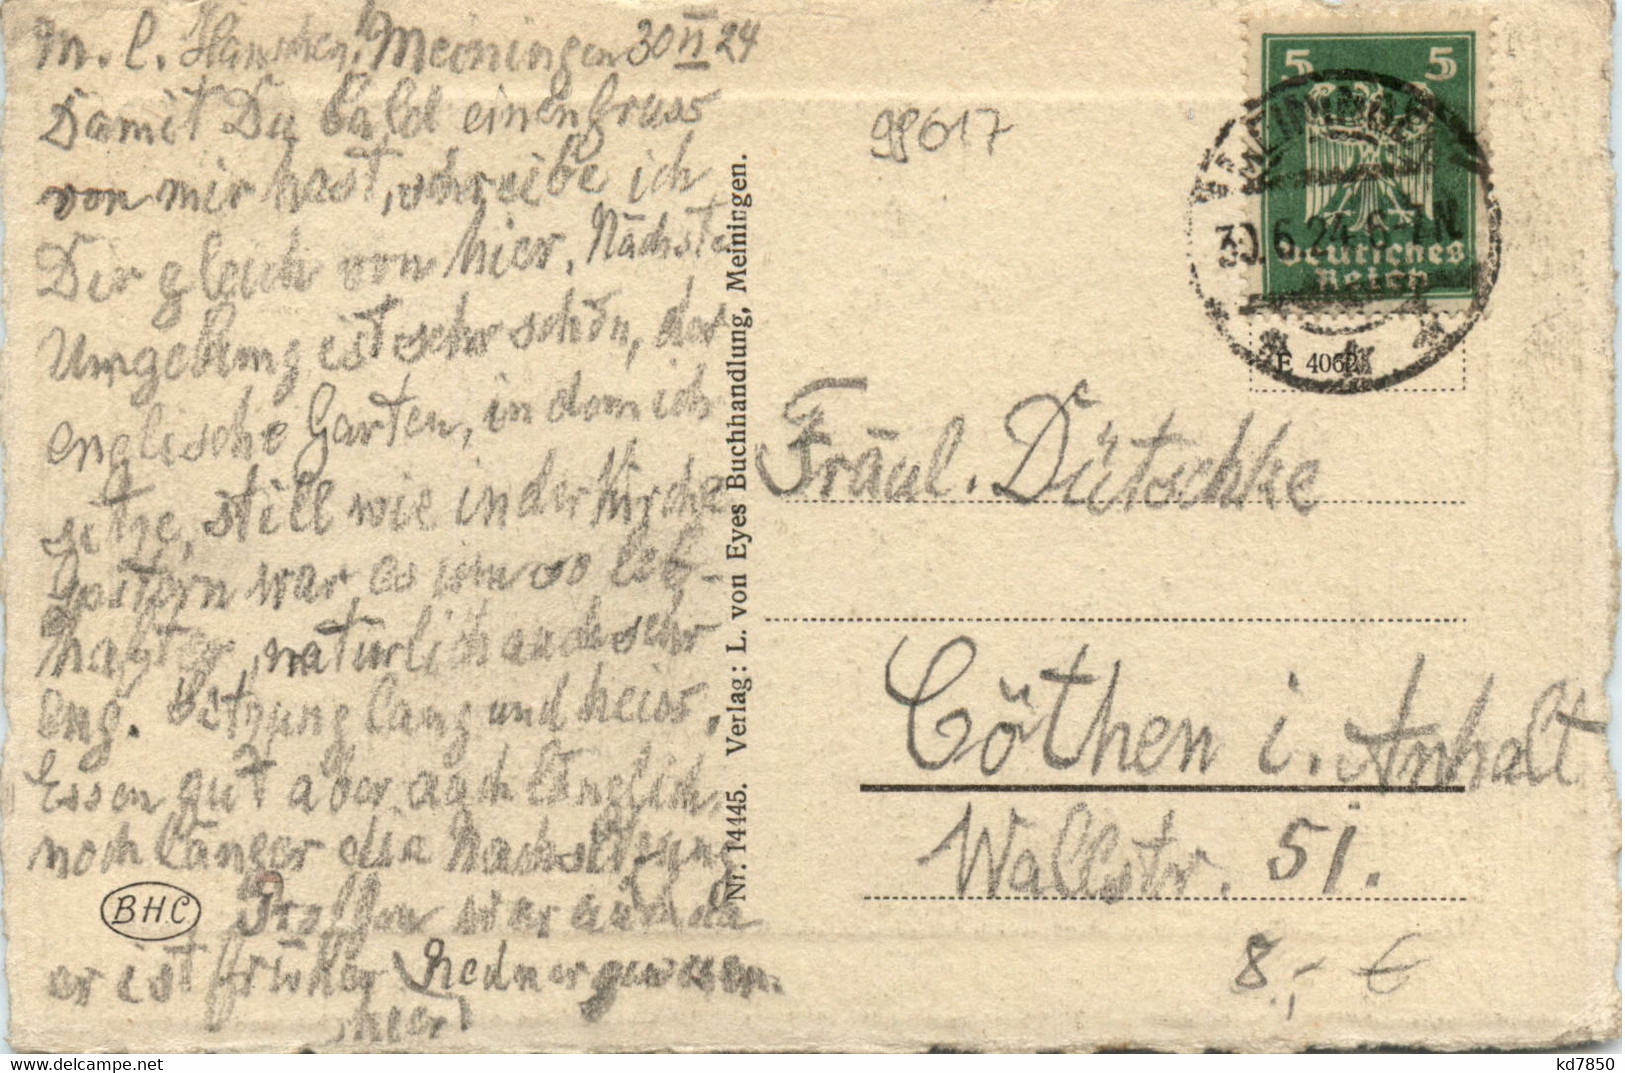 M. l. Hänschen! Meiningen 30 VI 24
Damit Du bald einen Gruss
von mir hast, schreibe ich
Dir gleich von hier. Nächste
Umgebung ist sehr schön, der
englische Garten, in dem ich
sitze, still wie in der Kirche
Gestern war es um so leb-
hafter, natürlich auch sehr
eng. Sitzung lang und heiss.
Essen gut aber auch länglich,
noch länger die Nachsitzung
war auch da
er ist früher Redner gewesen.
hier!
BHC
Nr. 14445. Verlag: L. von Eyes Buchhandlung, Meiningen.
98617
5 5
Deutsches
Reich
MEININGEN
30.6.24.6-7N
E 4062
Fräul. Dütschke
Cöthen i. Anhalt
Wallstr. 51.
8,- €
kd7850